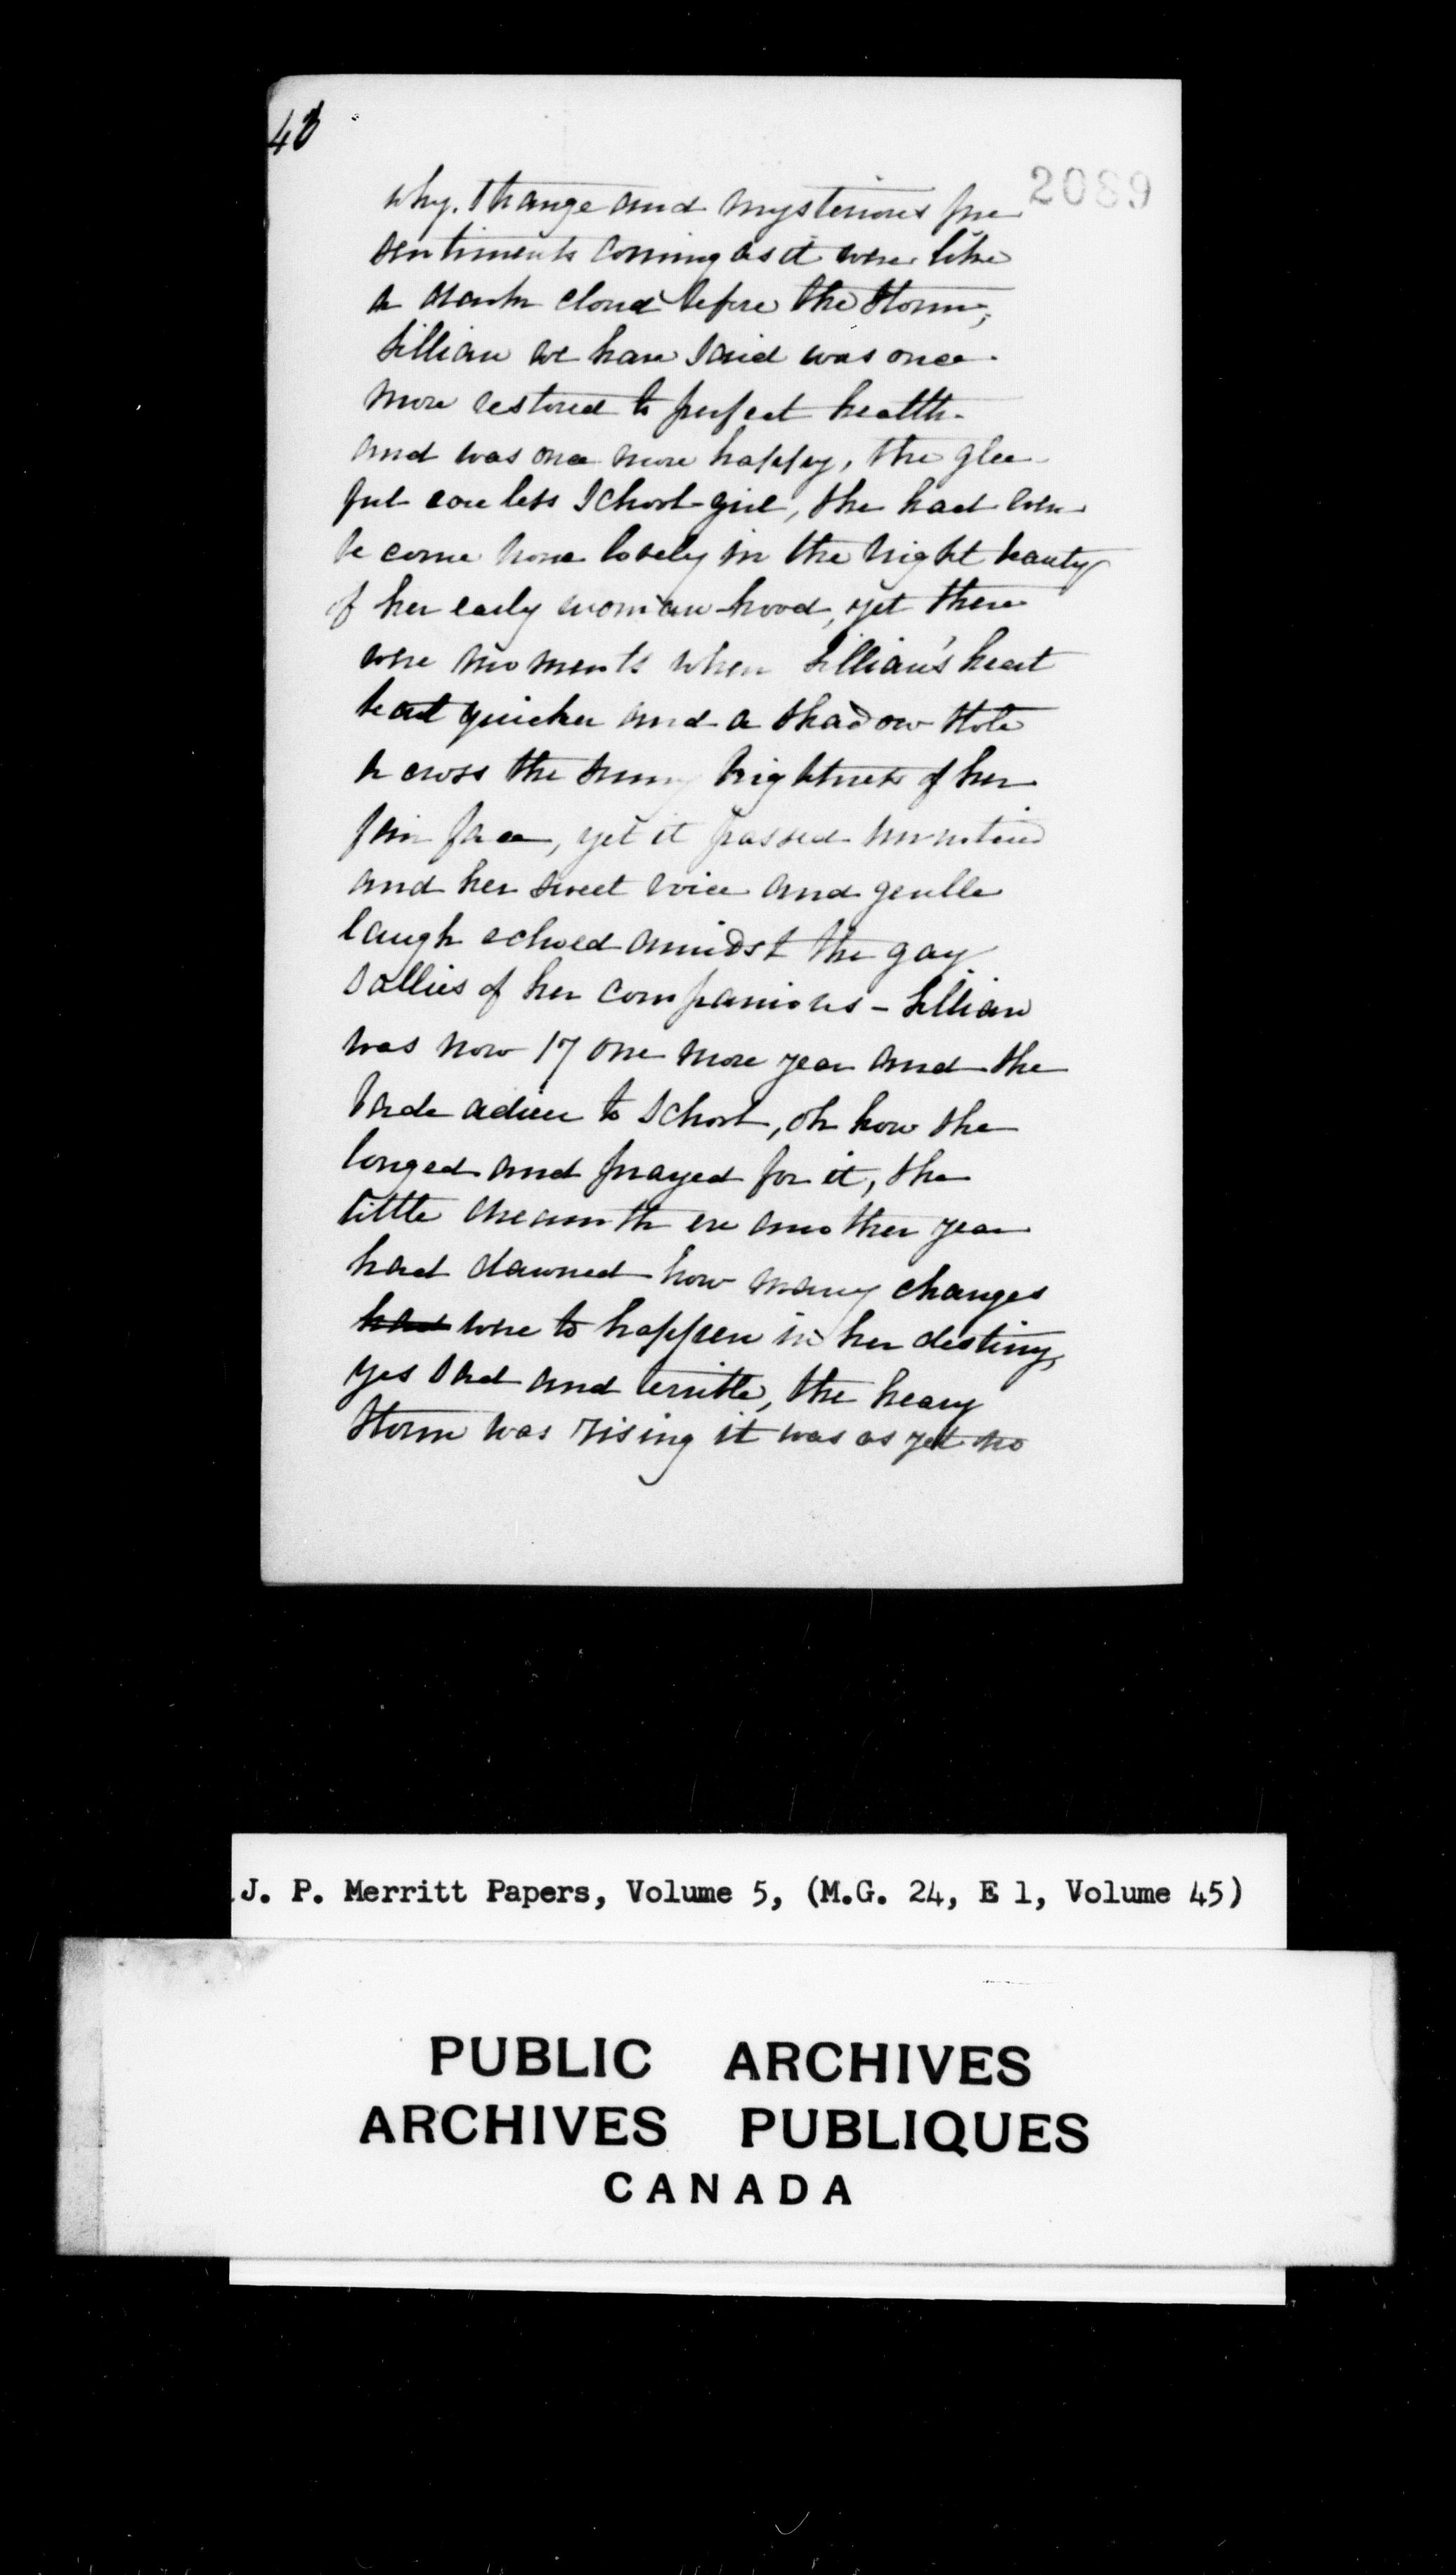 40
2089
why. Strange and mysterious pre
sentiments coming as it were like
a dark cloud before the storm,
Lillian we have said was once
more restored to perfect health
and was once more happy, the glee
ful careless School-girl, she had even
become more lovely in the bright beauty
of her early woman-hood, yet there
were moments when Lillian's heart
beat quicker and a shadow stole
across the sunny brightness of her
fair face, yet it passed unnoticed
and her sweet voice and gentle
laugh echoed amidst the gay
sallies of her companions - Lillian
was now 17 one more year and she
bade adieu to School, oh how she
longed and prayed for it, she
little dreamth ere another year
had dawned how many changes
had were to happen in her destiny,
yes sad and terrible, the heavy
storm was rising it was as yet no
J. P. Merritt Papers, Volume 5, (M.G. 24, E 1, Volume 45)
PUBLIC ARCHIVES
ARCHIVES PUBLIQUES
CANADA